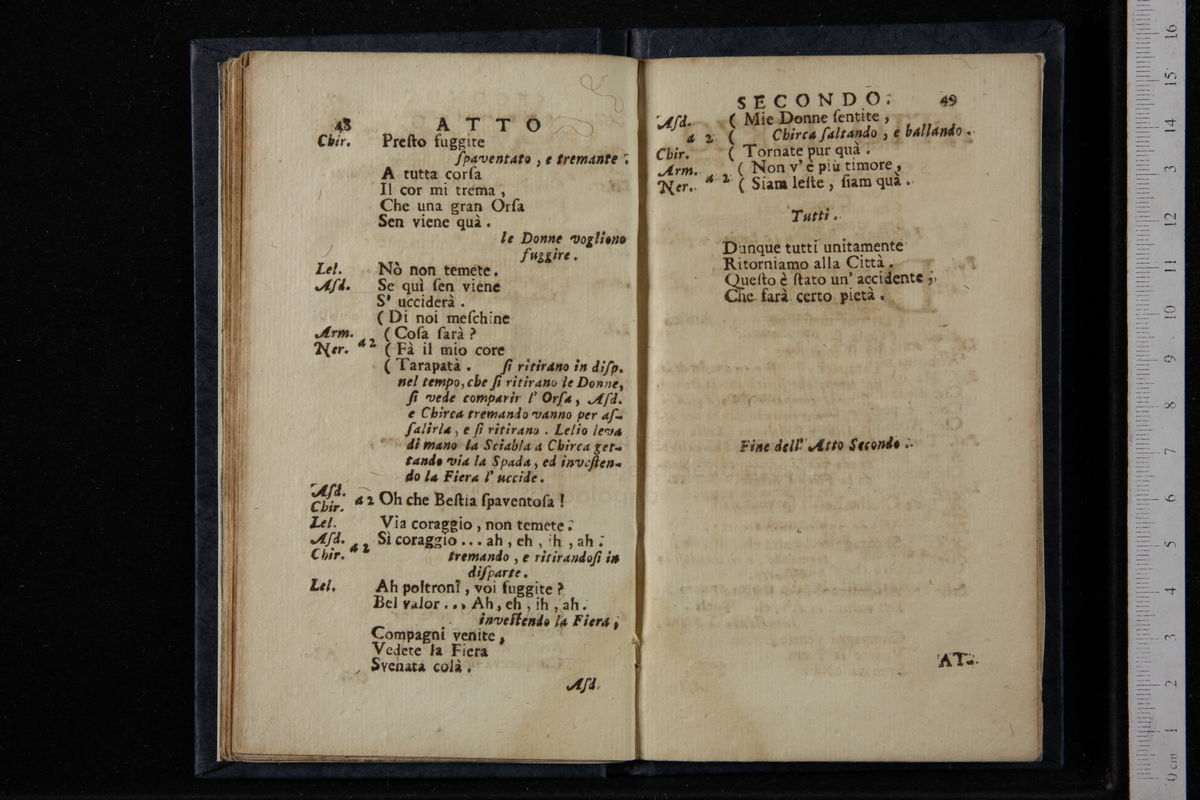 48 ATTO
Chir. Presto fuggite
spaventato, e tremante.
A tutta corsa
Il cor mi trema,
Che una gran Orsa
Sen viene quà.
le Donne vogliono
fuggire.
Lel. Nò non temete.
Asd. Se quì sen viene
S' ucciderà.
( Di noi meschine
Arm. ( Cosa sarà?
Ner. a 2 ( Fà il mio core
( Tarapatà. si ritirano in disp.
nel tempo, che si ritirano le Donne,
si vede comparir l' Orsa, Asd.
e Chirca tremando vanno per as-
salirla, e si ritirano. Lelio leva
di mano la Sciabla a Chirca get-
tando via la Spada, ed investen-
do la Fiera l' uccide.
Asd.
Chir. a 2 Oh che Bestia spaventosa!
Lel. Via coraggio, non temete.
Asd. Sì coraggio... ah, eh, ih, ah.
Chir. a 2 tremando, e ritirandosi in
disparte.
Lel. Ah poltroni, voi fuggite?
Bel valor... Ah, eh, ih, ah.
investendo la Fiera;
Compagni venite,
Vedete la Fiera
Svenata colà.
Asd.
SECONDO. 49
Asd. ( Mie Donne sentite,
a 2 ( Chirca saltando, e ballando.
Chir. ( Tornate pur quà.
Arm. ( Non v' è più timore,
Ner. a 2 ( Siam leste, siam quà.
Tutti.
Dunque tutti unitamente
Ritorniamo alla Città.
Questo è stato un' accidente,
Che farà certo pietà.
Fine dell' Atto Secondo.
AT-
0 cm 1 2 3 4 5 6 7 8 9 10 11 12 13 14 15 16